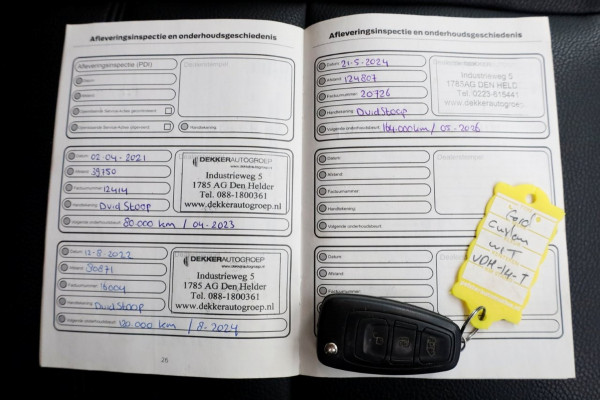 Afleveringsinspectie en onderhoudsgeschiedenis
Afleveringsinspectie (PDI)
Datum
Afstand
Handtekening
Datum 02-04-2021
Afstand 39750
Factuurnummer 12414
Handtekening Dvid Stoop
Volgende onderhoudsbeurt 80.000 km / 04-2023
DEKKERAUTOGROEP
Industrieweg 5
1785 AG Den Helder
Tel. 088-1800361
www.dekkerautogroep.nl
Datum 12-8-2022
Afstand
Factuurnummer 16004
Handtekening Dvid Stoop
Volgende onderhoudsbeurt 120.000 km / 8-2024
DEKKERAUTOGROEP
Industrieweg 5
1785 AG Den Helder
Tel. 088-1800361
www.dekkerautogroep.nl
26
Afleveringsinspectie en onderhoudsgeschiedenis
Datum 21-5-2024
Afstand 124807
Factuurnummer 20726
Handtekening Dvid Stoop
Volgende onderhoudsbeurt 164.000km / 05-2026
Industrieweg 5
1785AG DEN HELD
Tel. 0223-615441
www.dekkerautogroep.
Datum
Afstand
Factuurnummer
Handtekening
Volgende onderhoudsbeurt
Datum
Afstand
Ford
Custom
wit
VDH-14-T